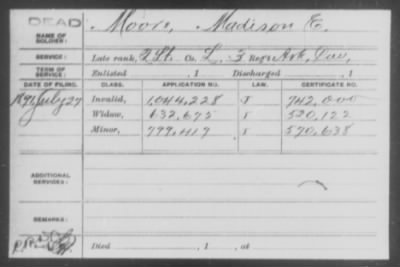 DEAD
NAME OF SOLDIER: Moore, Madison E.
SERVICE: Late rank, 2 Lt. Co. L, 3 Reg't Ark. Cav,
TERM OF SERVICE: Enlisted , 1 Discharged , 1
DATE OF FILING. CLASS. APPLICATION NO. LAW. CERTIFICATE NO.
1891 July 27 Invalid, 1,044,228 742,000
Widow, 632,675 520,122
Minor, 799,417 570,638
ADDITIONAL SERVICES:
REMARKS:
Died , 1 , at